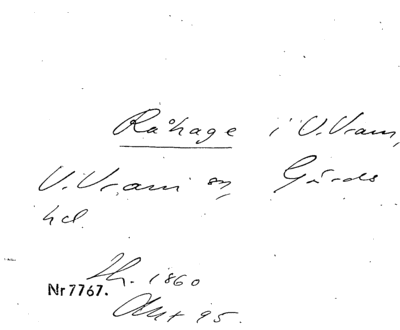 Råhage i V. Vram,
V. Vram sn, Gärds
hd.
Th. 1860
Nr 7767.
Akt 95.